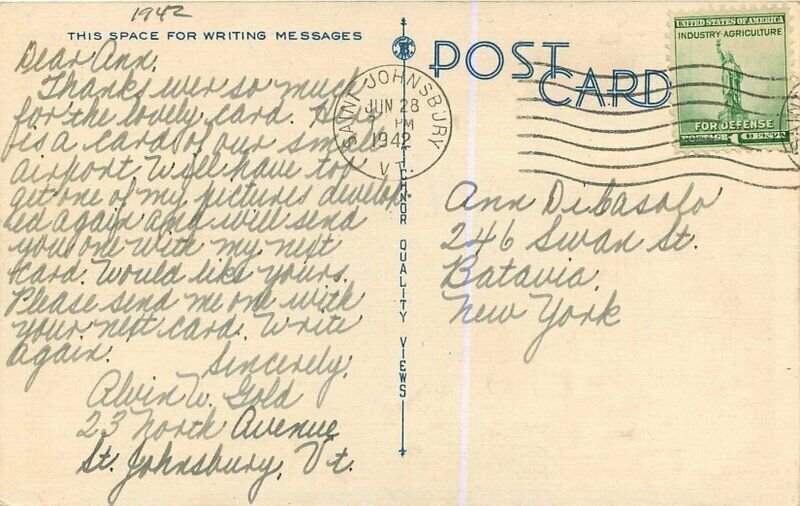 1942
THIS SPACE FOR WRITING MESSAGES
Dear Ann,
Thanks ever so much
for the lovely card. Here
is a card of our small
airport. Will have to
get one of my pictures develop
ed again and will send
you one with my next
card. Would like yours.
Please send me one with
your next card. Write
again.
Sincerely,
Alvin W. Gold
23 North Avenue
St. Johnsbury, Vt.
TICHNOR QUALITY VIEWS
POST CARD
SAINT JOHNSBURY
JUN 28
PM
1942
VT.
UNITED STATES OF AMERICA
INDUSTRY-AGRICULTURE
FOR DEFENSE
POSTAGE 1 CENTS
Ann DiCasolo
246 Swan St.
Batavia,
New York